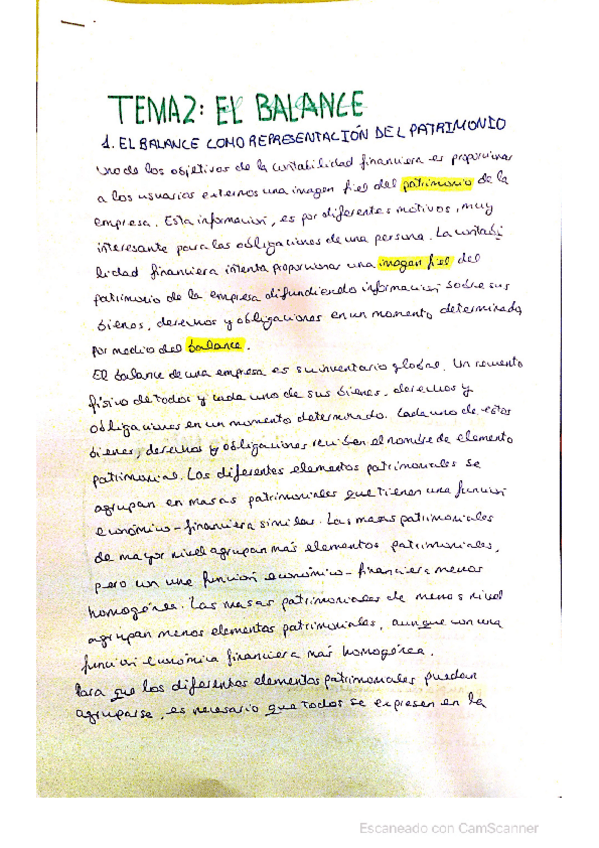 TEMA2: EL BALANCE
1. EL BALANCE COMO REPRESENTACIÓN DEL PATRIMONIO
Uno de los objetivos de la contabilidad financiera es proporcionar
a los usuarios externos una imagen fiel del patrimonio de la
empresa. Esta información, es por diferentes motivos, muy
interesante para las obligaciones de una persona. La contabi
lidad financiera intenta proporcionar una imagen fiel del
patrimonio de la empresa difundiendo información sobre sus
bienes, derechos y obligaciones en un momento determinado
por medio del balance.
El balance de una empresa es su inventario global. Un recuento
físico de todos y cada uno de sus bienes, derechos y
obligaciones en un momento determinado. Cada uno de estos
bienes, derechos y obligaciones reciben el nombre de elemento
patrimonial. Los diferentes elementos patrimoniales se
agrupan en masas patrimoniales que tienen una función
económico-financiera similar. Las masas patrimoniales
de mayor nivel agrupan más elementos patrimoniales,
pero con una función económico-financiera menos
homogénea. Las masas patrimoniales de menos nivel
agrupan menos elementos patrimoniales, aunque con una
función económica financiera más homogénea.
Para que los diferentes elementos patrimoniales puedan
agruparse, es necesario que todos se expresen en la
Escaneado con CamScanner